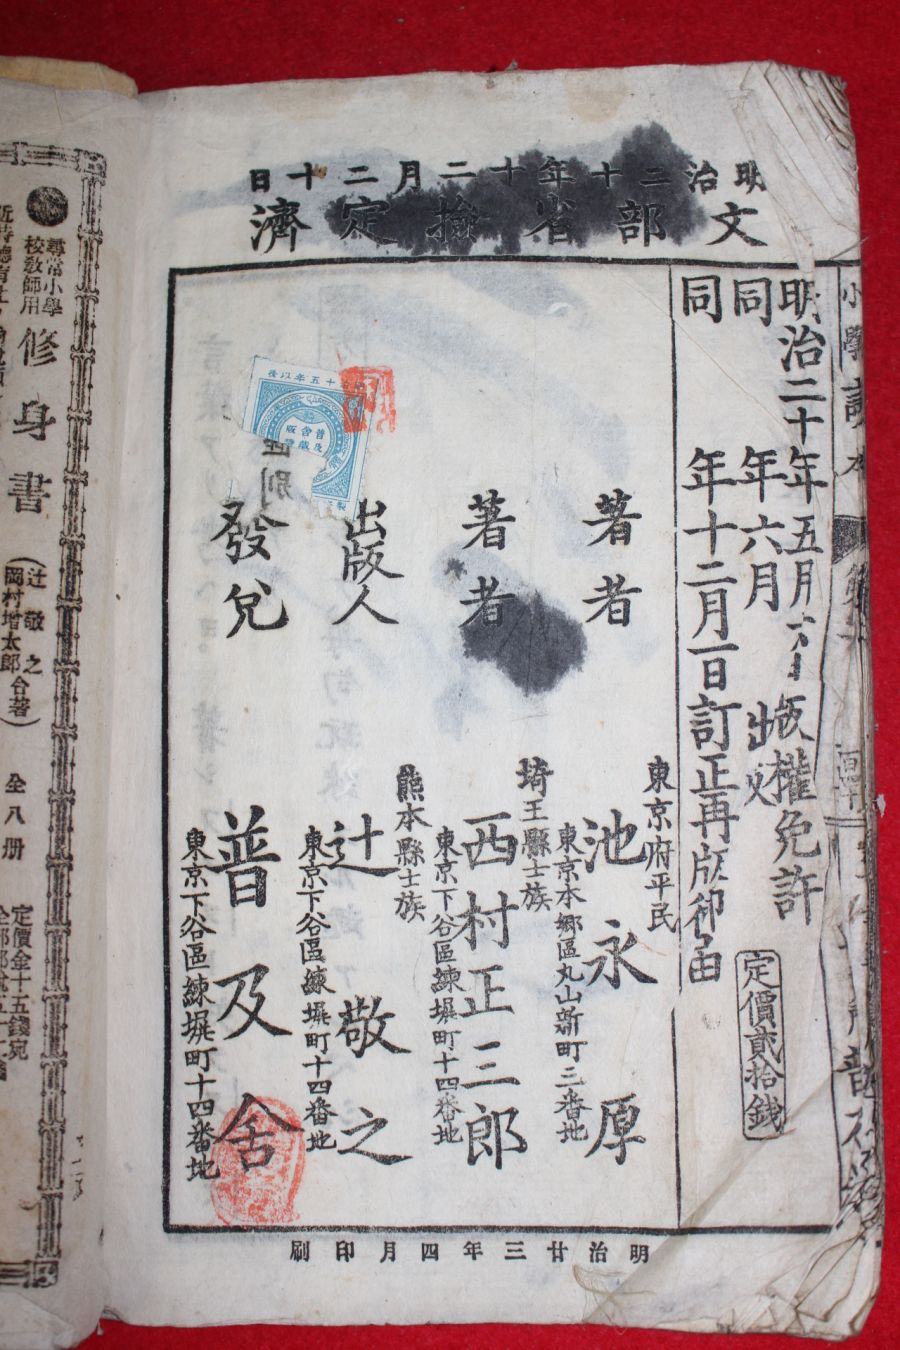 明治二十年十二月二十日
文部省檢定濟
明治二十年五月 版權免許
同年六月 出版
同年十二月一日訂正再版御届
定價貳拾錢
東京府平民
著者 池永厚
東京本郷區丸山新町三番地
埼玉縣士族
著者 西村正三郎
東京下谷區練塀町十四番地
熊本縣士族
出版人 辻敬之
東京下谷區練塀町十四番地
發兌 普及舍
東京下谷區練塀町十四番地
明治廿三年四月印刷
尋常小學
校教師用
修身書
辻敬之
岡村増太郎
合著
全八册
定價金十五錢宛